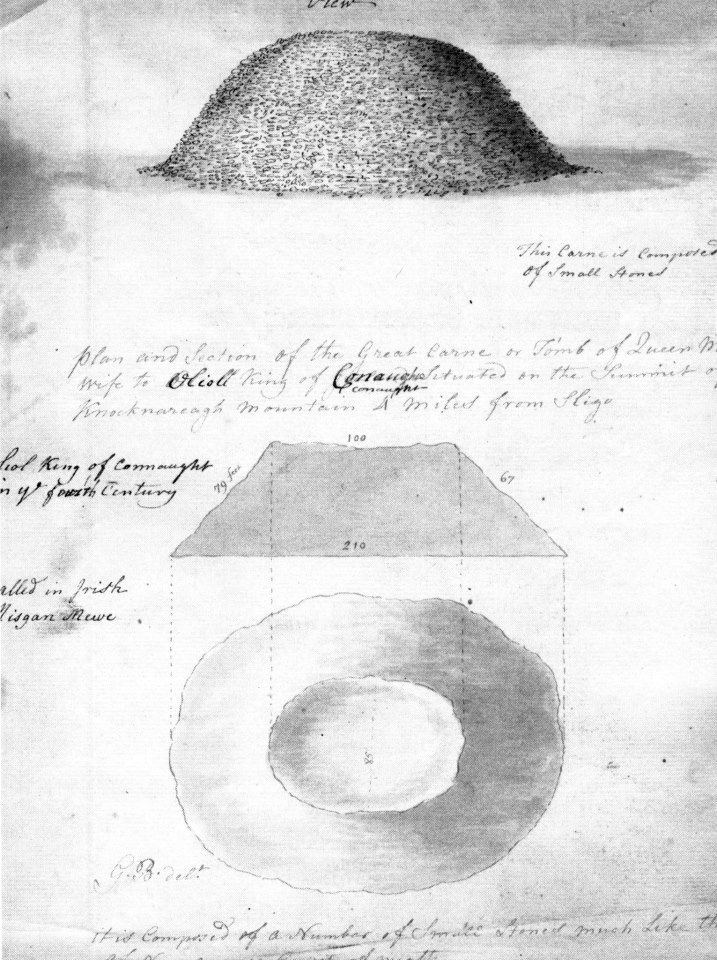 View
This Carne is Composed
of Small Stones
Plan and Section of the Great Carne or Tomb of Queen
wife to Olioll King of Conaught Situated on the Summit
conaught
Knocknareagh mountain 4 miles from Sligo
100
liol King of Connaught
in yᵉ fourth Century
79 feet
67
210
alled in Irish
Misgan Mewe
85
G. B. delᵗ
It is Composed of a Number of Small Stones much Like